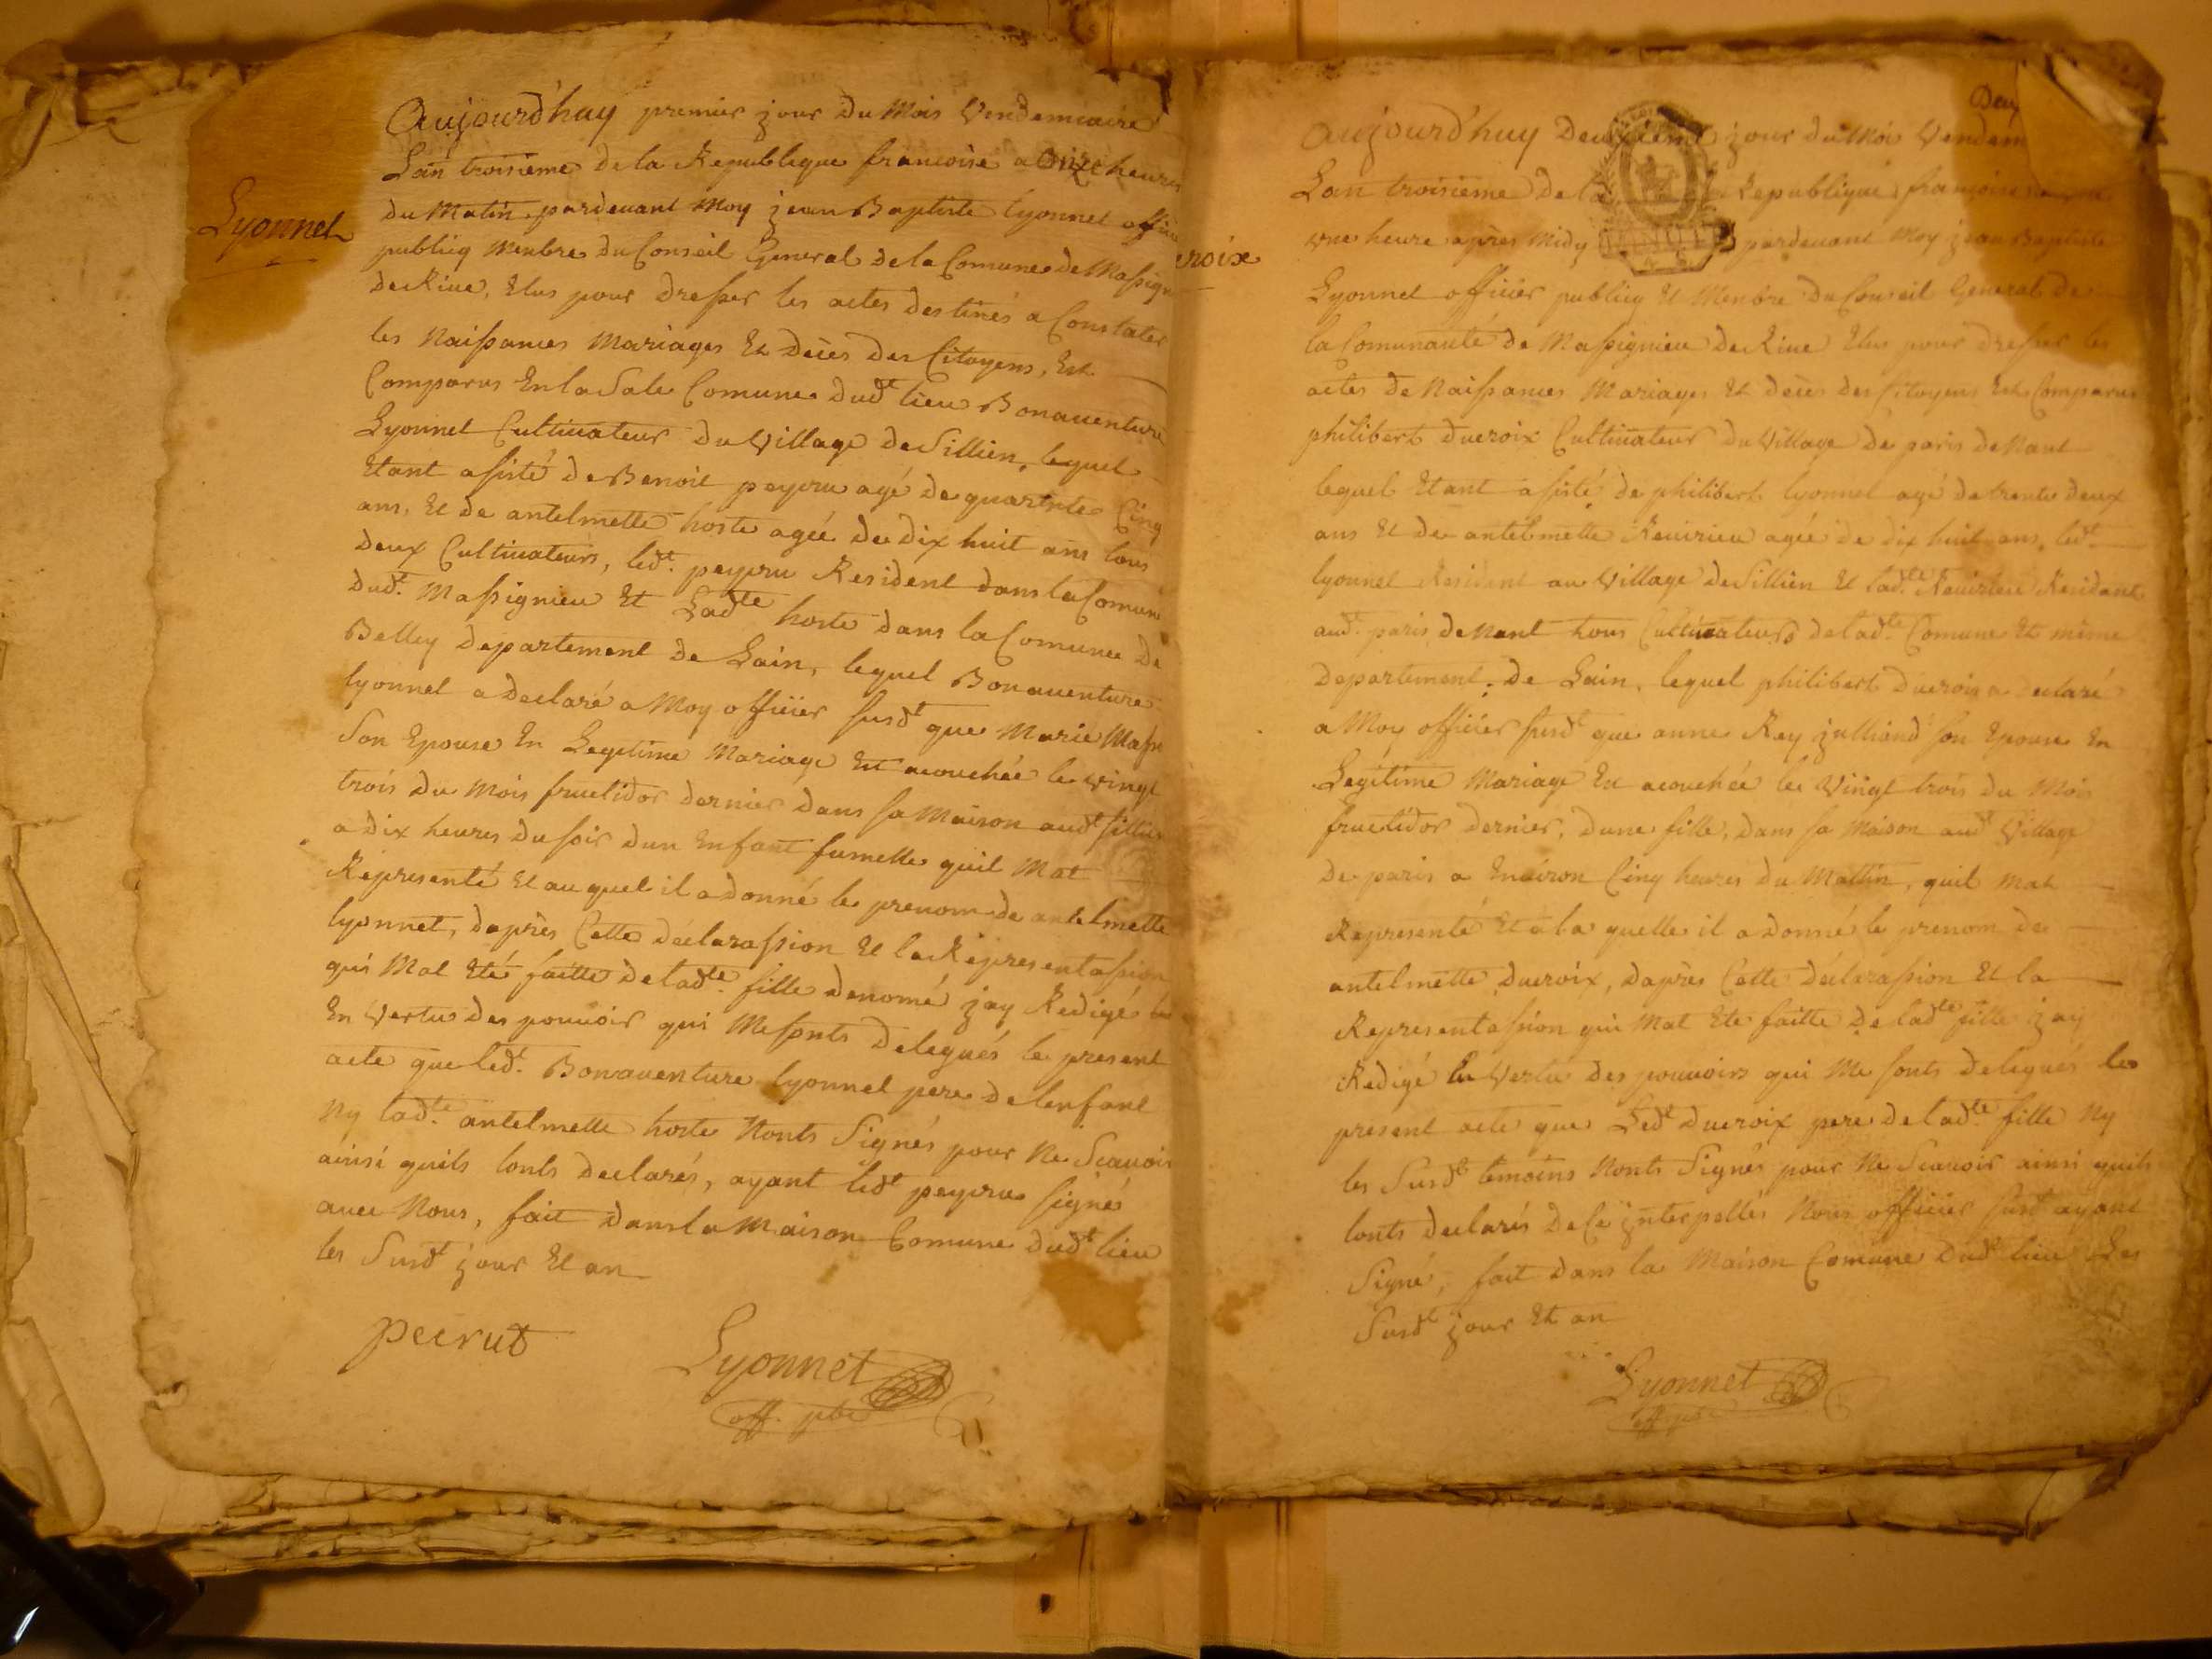 Lyonnet
Aujourd'huy premier jour du Mois Vendemiaire
Lan troisieme de la Republique francoise a Onze heures
du Matin pardevant Moy jean Baptiste lyonnet offi
publicq Menbre du Conseil General de la Comune de Massign
de Rive, Elus pour dresser les actes destinés a Constater
les Naissances Mariages Et deces des Citoyens, Est
Comparus En la Sale Comune dudt lieu Bonaventure
Lyonnet Cultivateur du Village de Sillien, lequel
Etant assisté de Benoit peyru agé de quarente Cinq
ans, Et de antelmette hoste agée de dix huit ans tous
deux Cultivateurs, ledt. peyru Resident dans la Comune
dudt. Massignieu Et Ladte hoste dans la Comune de
Belley departement de Lain, lequel Bonaventure
lyonnet a declaré a Moy officier susdt que Marie
Son Epouse En Legitime Mariage Est acouchée le vingt
trois du Mois fructidor dernier dans sa Maison audt
a dix heures du soir dun Enfant fumelle quil Mat
Representé Et au quel il a donné le prenom de antelmette
lyonnet, dapres Cette declarassion Et la Representassion
qui Mat Eté faitte de ladte. fille denomé jay Redigé
En Vertu des pouvoir qui Me sonts delegués le present
acte que ledt. Bonaventure lyonnet pere de lenfant
Ny ladte. antelmette hoste Nonts Signés pour Ne Scavoir
ainsi quils lonts declarés, ayant ledt peyru signés
avec Nous, fait dans la Maison Comune dudt lieu
les Susdt jour Et an
peirut
Lyonnet
off. pbe
croix
Aujourd'huy Deuxieme jour du Moi Vendem
Lan troisieme de la Republique francoise
Une heure apres Midy pardevant Moy jean Baptiste
Lyonnet officier publicq Et Menbre du Conseil General de
la Comunauté de Massignieu de Rive Elus pour dresser les
actes de Naissances Mariages Et deces des Citoyens Est Comparus
philibert ducroix Cultivateur du Village de paris de Nant
lequel Etant assisté de philibert lyonnet agé de trente deux
ans Et de antelmette Revirieu agée de dix huit ans, ledt
lyonnet Resident au Village de Sillien Et ladte. Revirieu Residant
audt. paris de Nant tous Cultivateurs de ladte Comune Et même
departement de Lain, lequel philibert ducroix a declaré
a Moy officier susdt que anne Rey julliand son Epouse En
Legitime Mariage Est acouchée le Vingt trois du Mois
fructidor dernier, dune fille, dans sa Maison audt Village
de paris a Environ Cinq heures du Mattin, quil Mat
Representé Et a la quelle il a donné le prenom de
antelmette ducroix, dapres Cette declarassion Et la
Representassion qui Mat Ete faitte de ladte fille jay
Redigé En Vertu des pouvoirs qui Me sonts delegués le
present acte que Ledt ducroix pere de ladte fille Ny
les Susdt temoins Nonts Signés pour Ne Scavoir ainsi quils
lonts declarés de Ce jnterpellés Nous officier susdt ayant
Signé, fait dans la Maison Comune dudt lieu Les
Susdt jour Et an
Lyonnet
off. pbe